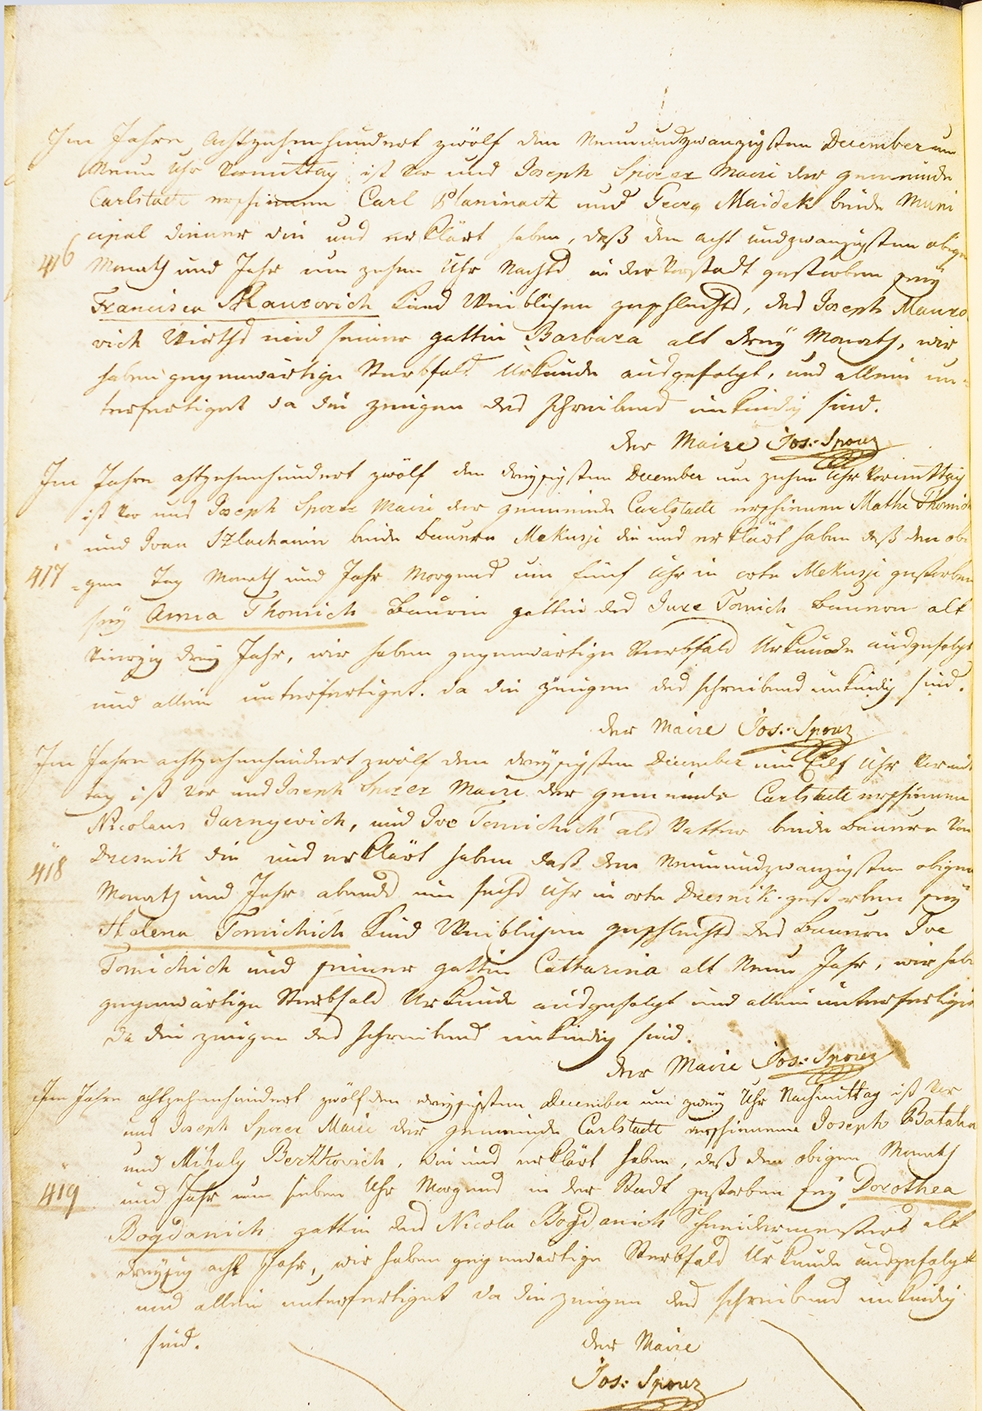 Im Jahre achtzehenhundert zwölf den Neunundzwanzigsten December um
Neun Uhr Vormittag ist vor uns Joseph Sporer Maire der gemeinde
Carlstadt erschienen Carl Planinack und Georg Maidek beide Muni
cipal diener die uns erklärt haben, daß den acht und zwanzigsten obigen
416 Monath und Jahr um zehen Uhr Nachts in der Vorstadt gestorben sey
Francisca Maurovich Kind Weiblichen geschlechts, des Joseph Mauro
vich Wirths und seiner gattin Barbara alt drey Monath, wir
haben gegenwärtige Sterbfalls Urkunde ausgefolgt, und allein un-
terfertiget da die zeugen des schreibens unkundig sind.
der Maire Jos: Sporer
Im Jahre achtzehenhundert zwölf den dreyßigsten December um zehen Uhr Vormittag
ist vor uns Joseph Sporer Maire der gemeinde Carlstadt erschienen Mathe Thomich
und Ivan Szlachanin beide Bauern Mekusje die uns erklärt haben daß den obi
417 gen Tag Monath und Jahr Morgens um fünf Uhr in orte Mekuszje gestorben
sey Anna Thomich Bäurin gattin des Jure Tomich Bauern alt
vierzig drey Jahr, wir haben gegenwärtige Sterbfalls Urkunde ausgefolgt
und allein unterfertiget. da die zeugen des schreibens unkundig sind.
der Maire Jos: Sporer
Im Jahre achtzehenhundert zwölf den dreyßigsten December um Eilf Uhr Vormit
tag ist vor uns Joseph Sporer Maire der gemeinde Carlstadt erschienen
Nicolaus Jarnyevich, und Ive Tomichich als Vatter beide Bauern von
418 Dresnik die uns erklärt haben daß den Neunundzwanzigsten obigen
Monath und Jahr abends um sechs Uhr in orte Dresnik gestorben sey
Helena Tomichich Kind Weiblichen geschlechts des Bauern Ive
Tomichich und seiner gattin Catharina alt Neun Jahr, wir haben
gegenwärtige Sterbfalls Urkunde ausgefolgt und allein unterfertiget
da die zeugen des schreibens unkundig sind.
der Maire Jos: Sporer
Im Jahre achtzehenhundert zwölf den dreyßigsten December um zwey Uhr Nachmittag ist vor
uns Joseph Sporer Maire der gemeinde Carlstadt erschienen Joseph
und Mihaly Berthovich, die uns erklärt haben, daß den obigen Monath
419 und Jahr um sieben Uhr Morgens in der Stadt gestorben sey Dorothea
Bogdanich gattin des Nicola Bogdanich Schneidermeisters alt
dreyßig acht Jahr, wir haben gegenwärtige Sterbfalls Urkunde ausgefolgt
und allein unterfertiget da die zeugen des schreibens unkundig
sind.
der Maire
Jos: Sporer